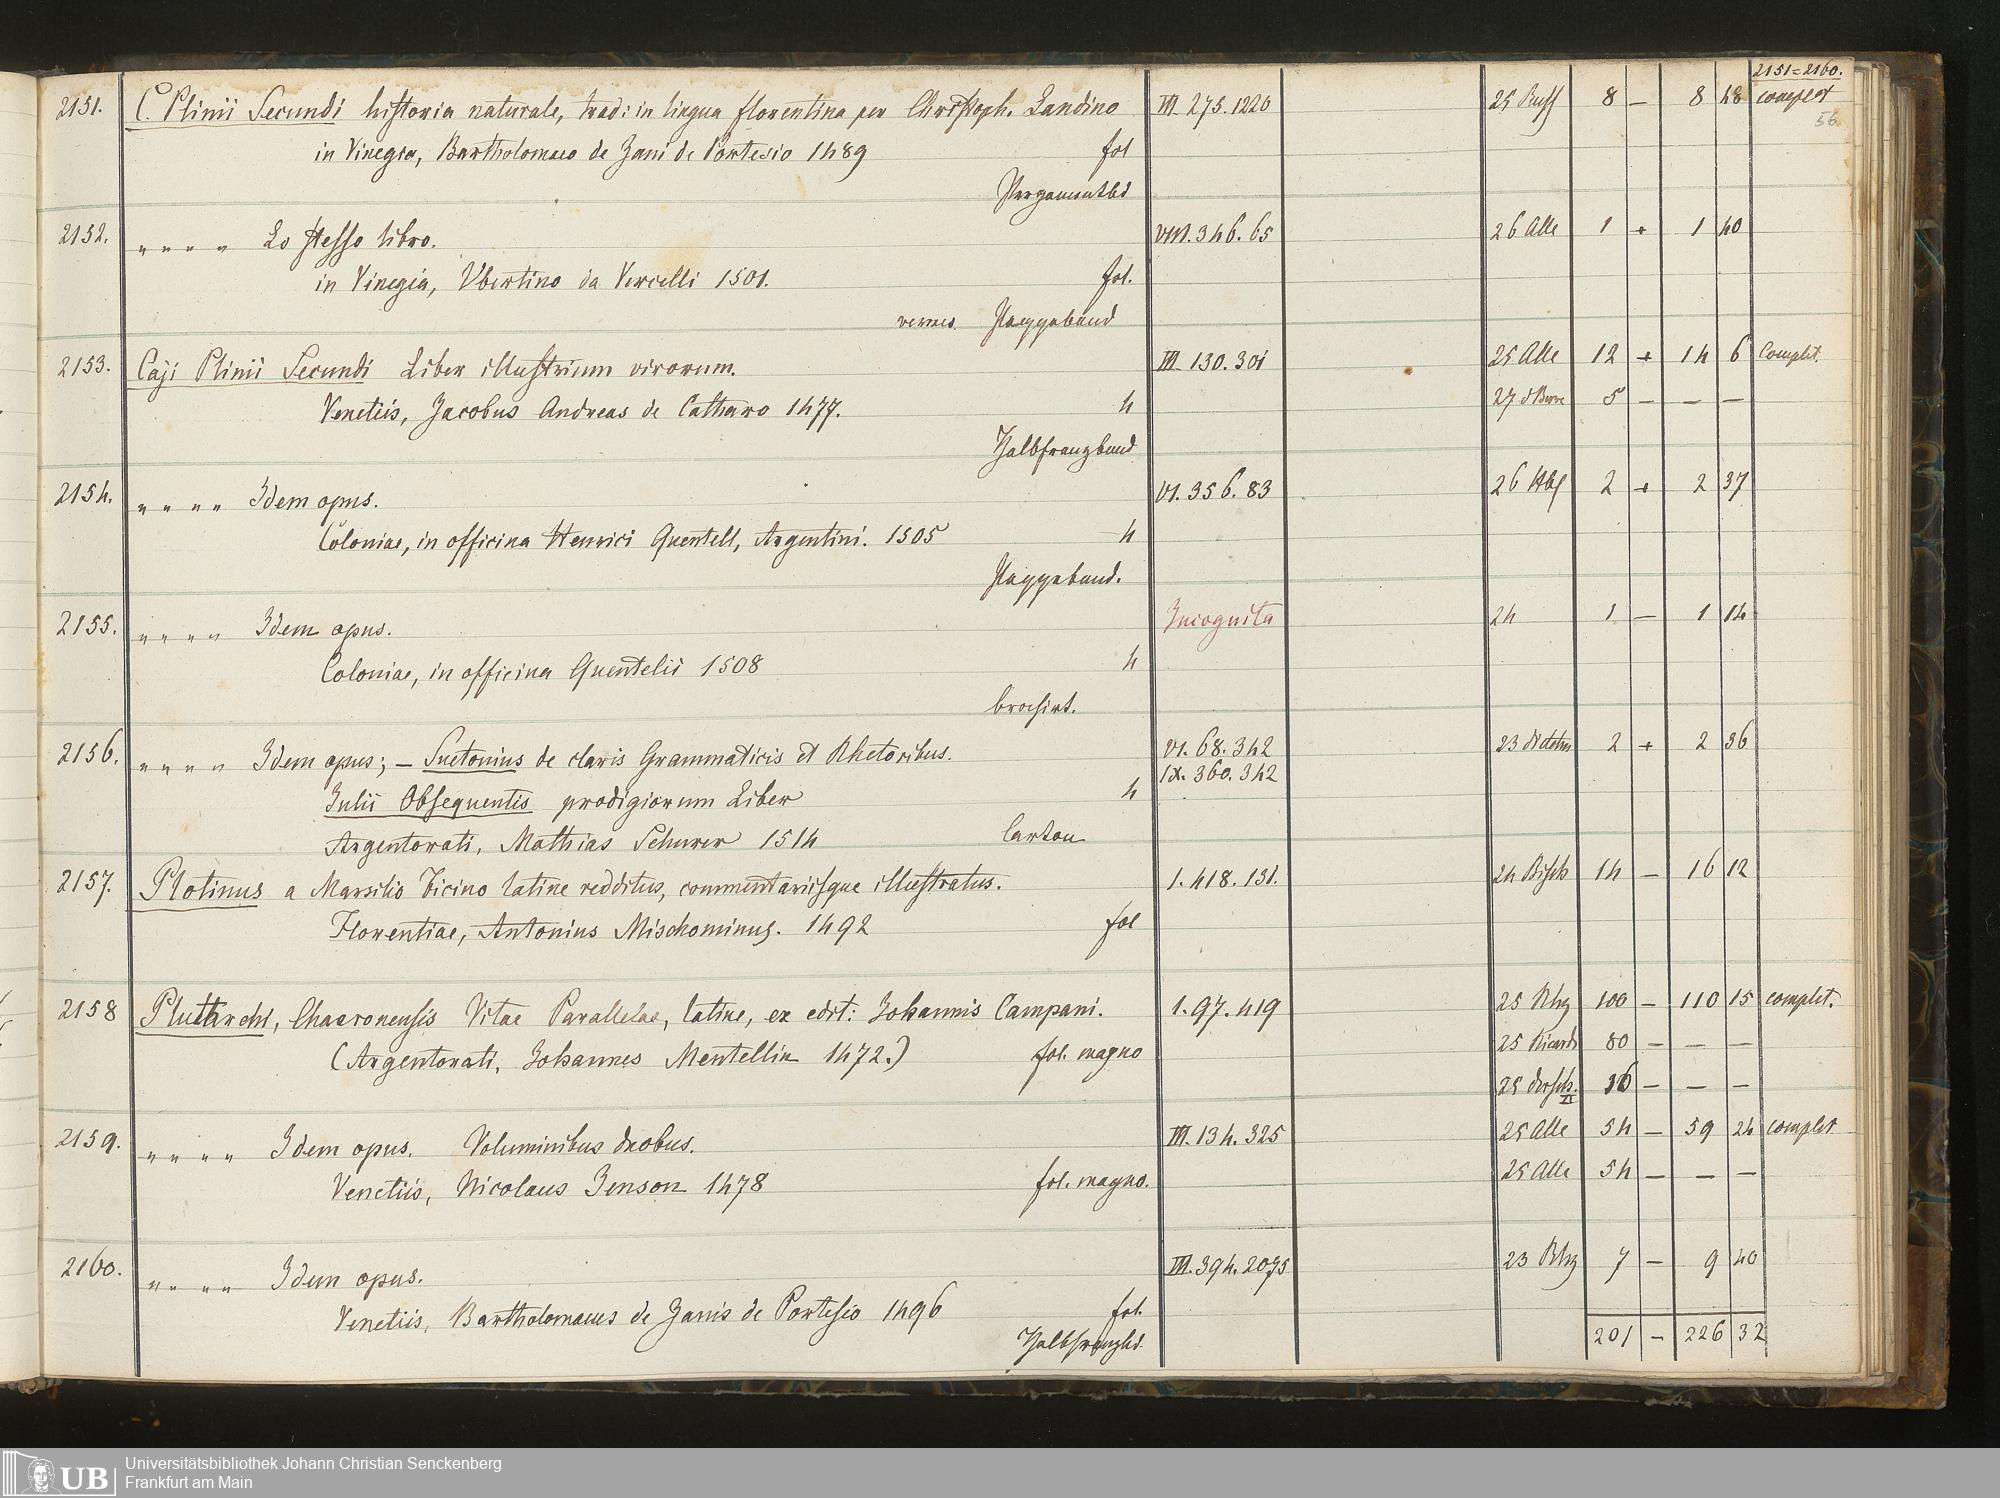 2151=2160.
2151. C. Plinii Secundi historia naturale, trad: in lingua florentina per Christoph. Landino III. 275. 1226 25 8 — 8 48 complet
56
in Vinegia, Bartholomaeo de Zani de Portesio 1489 fol
Pergamentbd
2152. " " " " Lo stesso libro. VIII. 346. 65 26 Alle 1 + 1 40
in Vinegia, Ubertino da Vercelli 1501. fol.
Pappeband
2153. Caji Plinii Secundi Liber illustrium virorum. III. 130. 301 25 Alle 12 + 14 6 Complet.
Venetiis, Jacobus Andreas de Catharo 1477. 4 27 5 — — —
Halbfranzband
2154. " " " " Idem opus. VI. 356. 83 26 2 + 2 37
Coloniae, in officina Henrici Quentell, Argentini. 1505 4
Pappeband.
2155. " " " " Idem opus. Incognita 24 1 — 1 14
Coloniae, in officina Quentelii 1508 4
brosirt.
2156. " " " " Idem opus; — Suetonius de claris Grammaticis et Rhetoribus. VI. 68. 342 23 2 + 2 36
IX. 360. 342
Julii Obsequentis prodigiorum Liber 4
Argentorati, Mathias Schurer 1514 Carton
2157. Plotinus a Marsilio Ficino latine redditus, commentariisque illustratus. I. 418. 131. 24 14 — 16 12
Florentiae, Antonius Mischominus. 1492 fol
2158 Plutarchi, Chaeronensis Vitae Parallelae, latine, ex edit: Johannis Campani. I. 97. 419 25 Rhz 100 — 110 15 complet.
(Argentorati, Johannes Mentellin 1472.) fol. magno 25 Ricards 80 — — —
25 36 — — —
2159. " " " " Idem opus. Voluminibus duobus. III. 134. 325 25 Alle 54 — 59 24 complet
Venetiis, Nicolaus Jenson 1478 fol. magno. 25 Alle 54 — — —
2160. " " " " Idem opus. III. 394. 2075 23 Rhz 7 — 9 40
Venetiis, Bartholomaeus de Zanis de Portesio 1496 fol.
Halbfranzbd. 201 — 226 32
UB Universitätsbibliothek Johann Christian Senckenberg
Frankfurt am Main